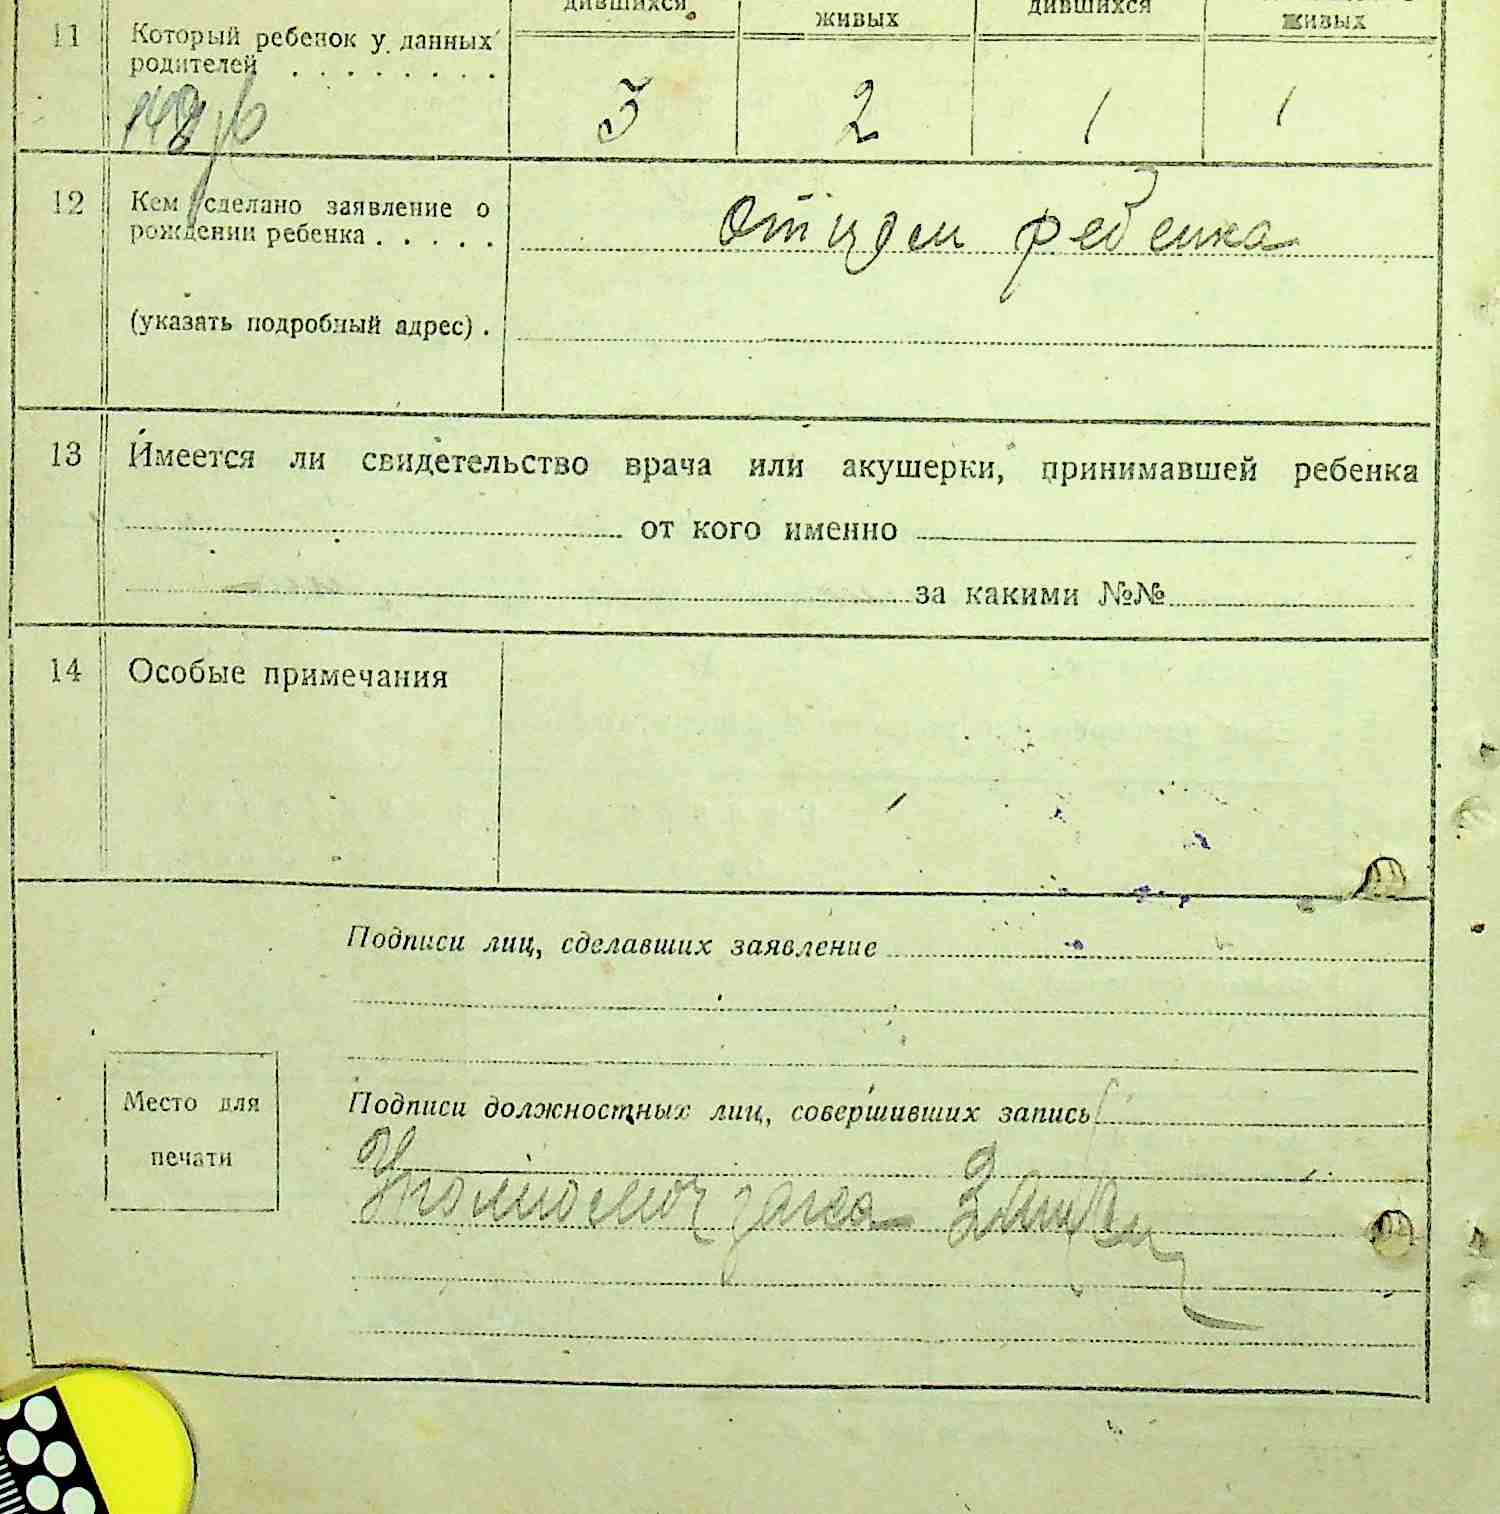 дившихся живых дившихся живых
11 Который ребенок у данных
родителей . . . . . . . .
3 2 1 1
12 Кем сделано заявление о
рождении ребенка . . . . .
Отцом ребенка
(указать подробный адрес) .
13 Имеется ли свидетельство врача или акушерки, принимавшей ребенка
от кого именно
за какими №№
14 Особые примечания
Подписи лиц, сделавших заявление
Место для
печати
Подписи должностных лиц, совершивших запись
Уполномоч загса